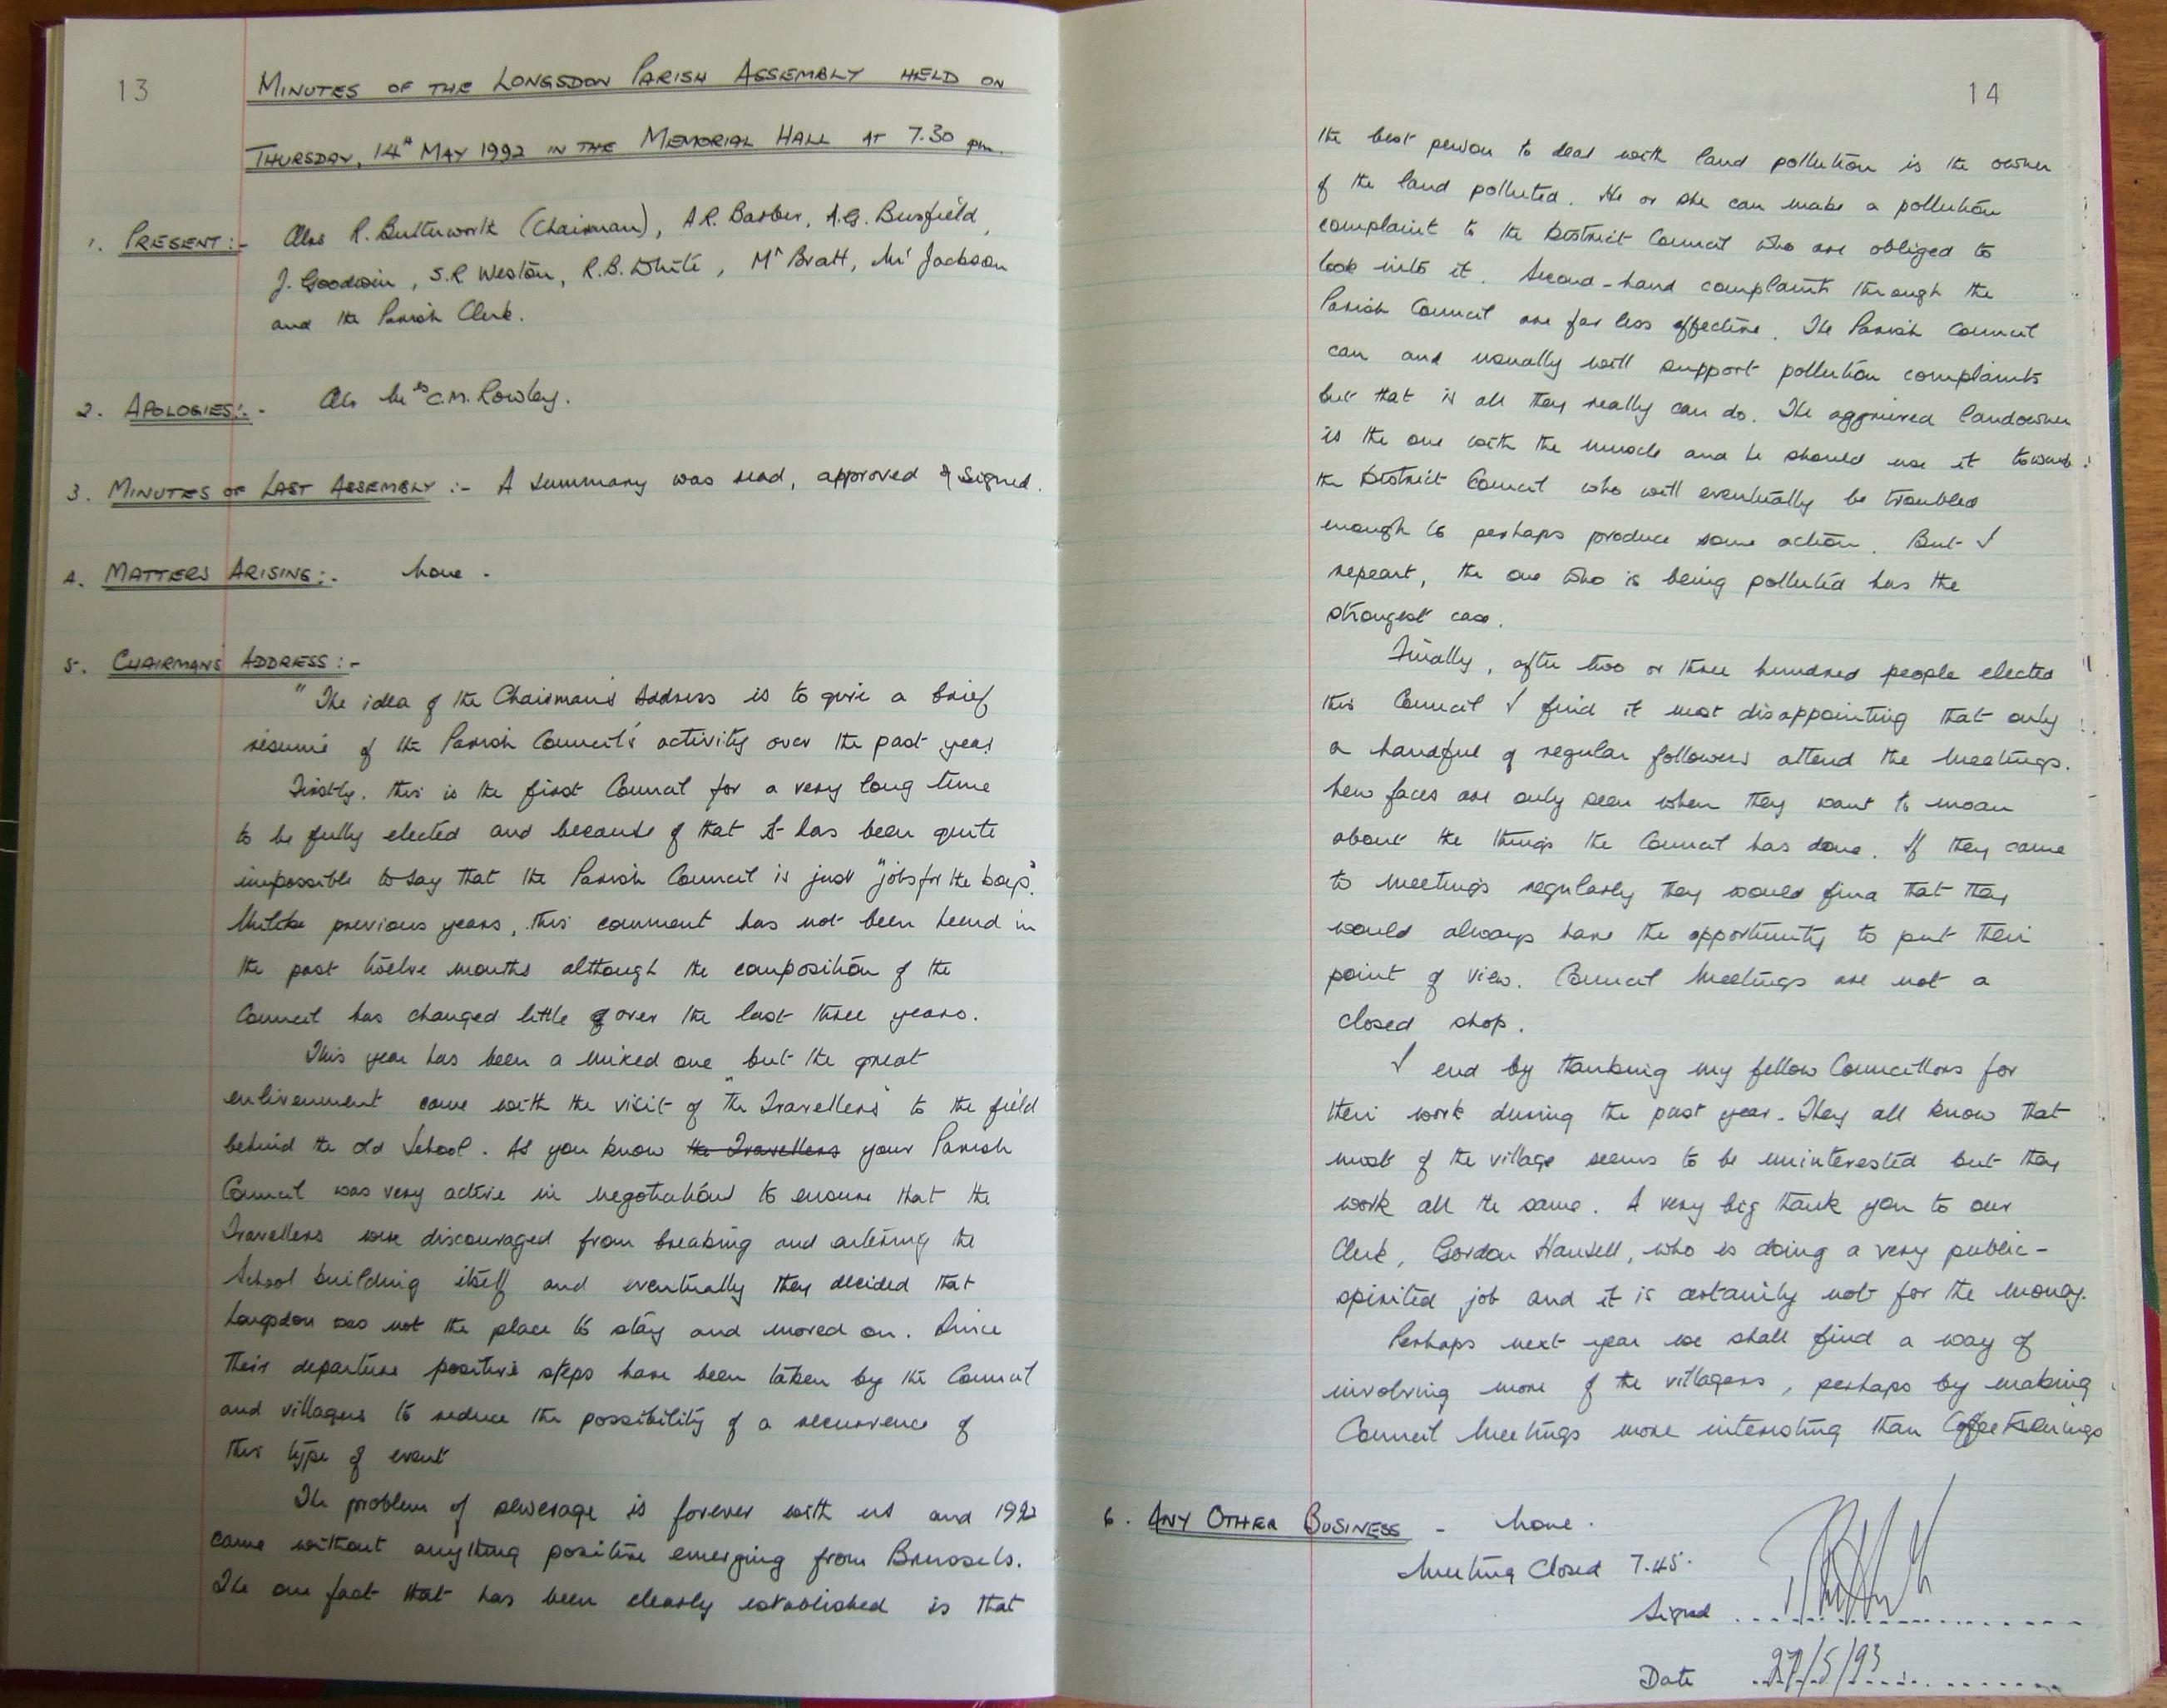 13
MINUTES OF THE LONGSDON PARISH ASSEMBLY HELD ON
THURSDAY, 14th MAY 1992 IN THE MEMORIAL HALL AT 7.30 pm.
1. PRESENT:- Cllrs R. Butterworth (Chairman), A.R. Barber, A.G. Busfield,
J. Goodwin, S.R. Weston, R.B. White, Mr Bratt, Mr Jackson
and the Parish Clerk.
2. APOLOGIES:- Cllr Mrs C.M. Rowley.
3. MINUTES OF LAST ASSEMBLY:- A summary was read, approved & signed.
4. MATTERS ARISING:- None.
5. CHAIRMAN'S ADDRESS:-
"The idea of the Chairman's Address is to give a brief
résumé of the Parish Council's activity over the past year
Firstly, this is the first Council for a very long time
to be fully elected and because of that it has been quite
impossible to say that the Parish Council is just "jobs for the boys".
Unlike previous years, this comment has not been heard in
the past twelve months although the composition of the
Council has changed little over the last three years.
This year has been a mixed one but the great
enlivenment came with the visit of "the Travellers" to the field
behind the old School. As you know the Travellers your Parish
Council was very active in negotiations to ensure that the
Travellers were discouraged from breaking and entering the
School building itself and eventually they decided that
Longsdon was not the place to stay and moved on. Since
their departure positive steps have been taken by the Council
and villagers to reduce the possibility of a recurrence of
this type of event
The problem of sewerage is forever with us and 1992
came without anything positive emerging from Brussels.
The one fact that has been clearly established is that
14
the best person to deal with land pollution is the owner
of the land polluted. He or she can make a pollution
complaint to the District Council who are obliged to
look into it. Second-hand complaints through the
Parish Council are far less effective. The Parish Council
can and usually will support pollution complaints
but that is all they really can do. The aggrieved landowner
is the one with the muscle and he should use it towards
the District Council who will eventually be troubled
enough to perhaps produce some action. But I
repeat, the one who is being polluted has the
strongest case.
Finally, after two or three hundred people elected
this Council I find it most disappointing that only
a handful of regular followers attend the Meetings.
New faces are only seen when they want to moan
about the things the Council has done. If they came
to Meetings regularly they would find that they
would always have the opportunity to put their
point of view. Council Meetings are not a
closed shop.
I end by thanking my fellow Councillors for
their work during the past year. They all know that
most of the village seems to be uninterested but they
work all the same. A very big thank you to our
Clerk, Gordon Hansell, who is doing a very public-
spirited job and it is certainly not for the money.
Perhaps next year we shall find a way of
involving more of the villagers, perhaps by making
Council Meetings more interesting than Coffee Evenings
6. ANY OTHER BUSINESS - None.
Meeting Closed 7.45.
Signed
Date 27/5/93